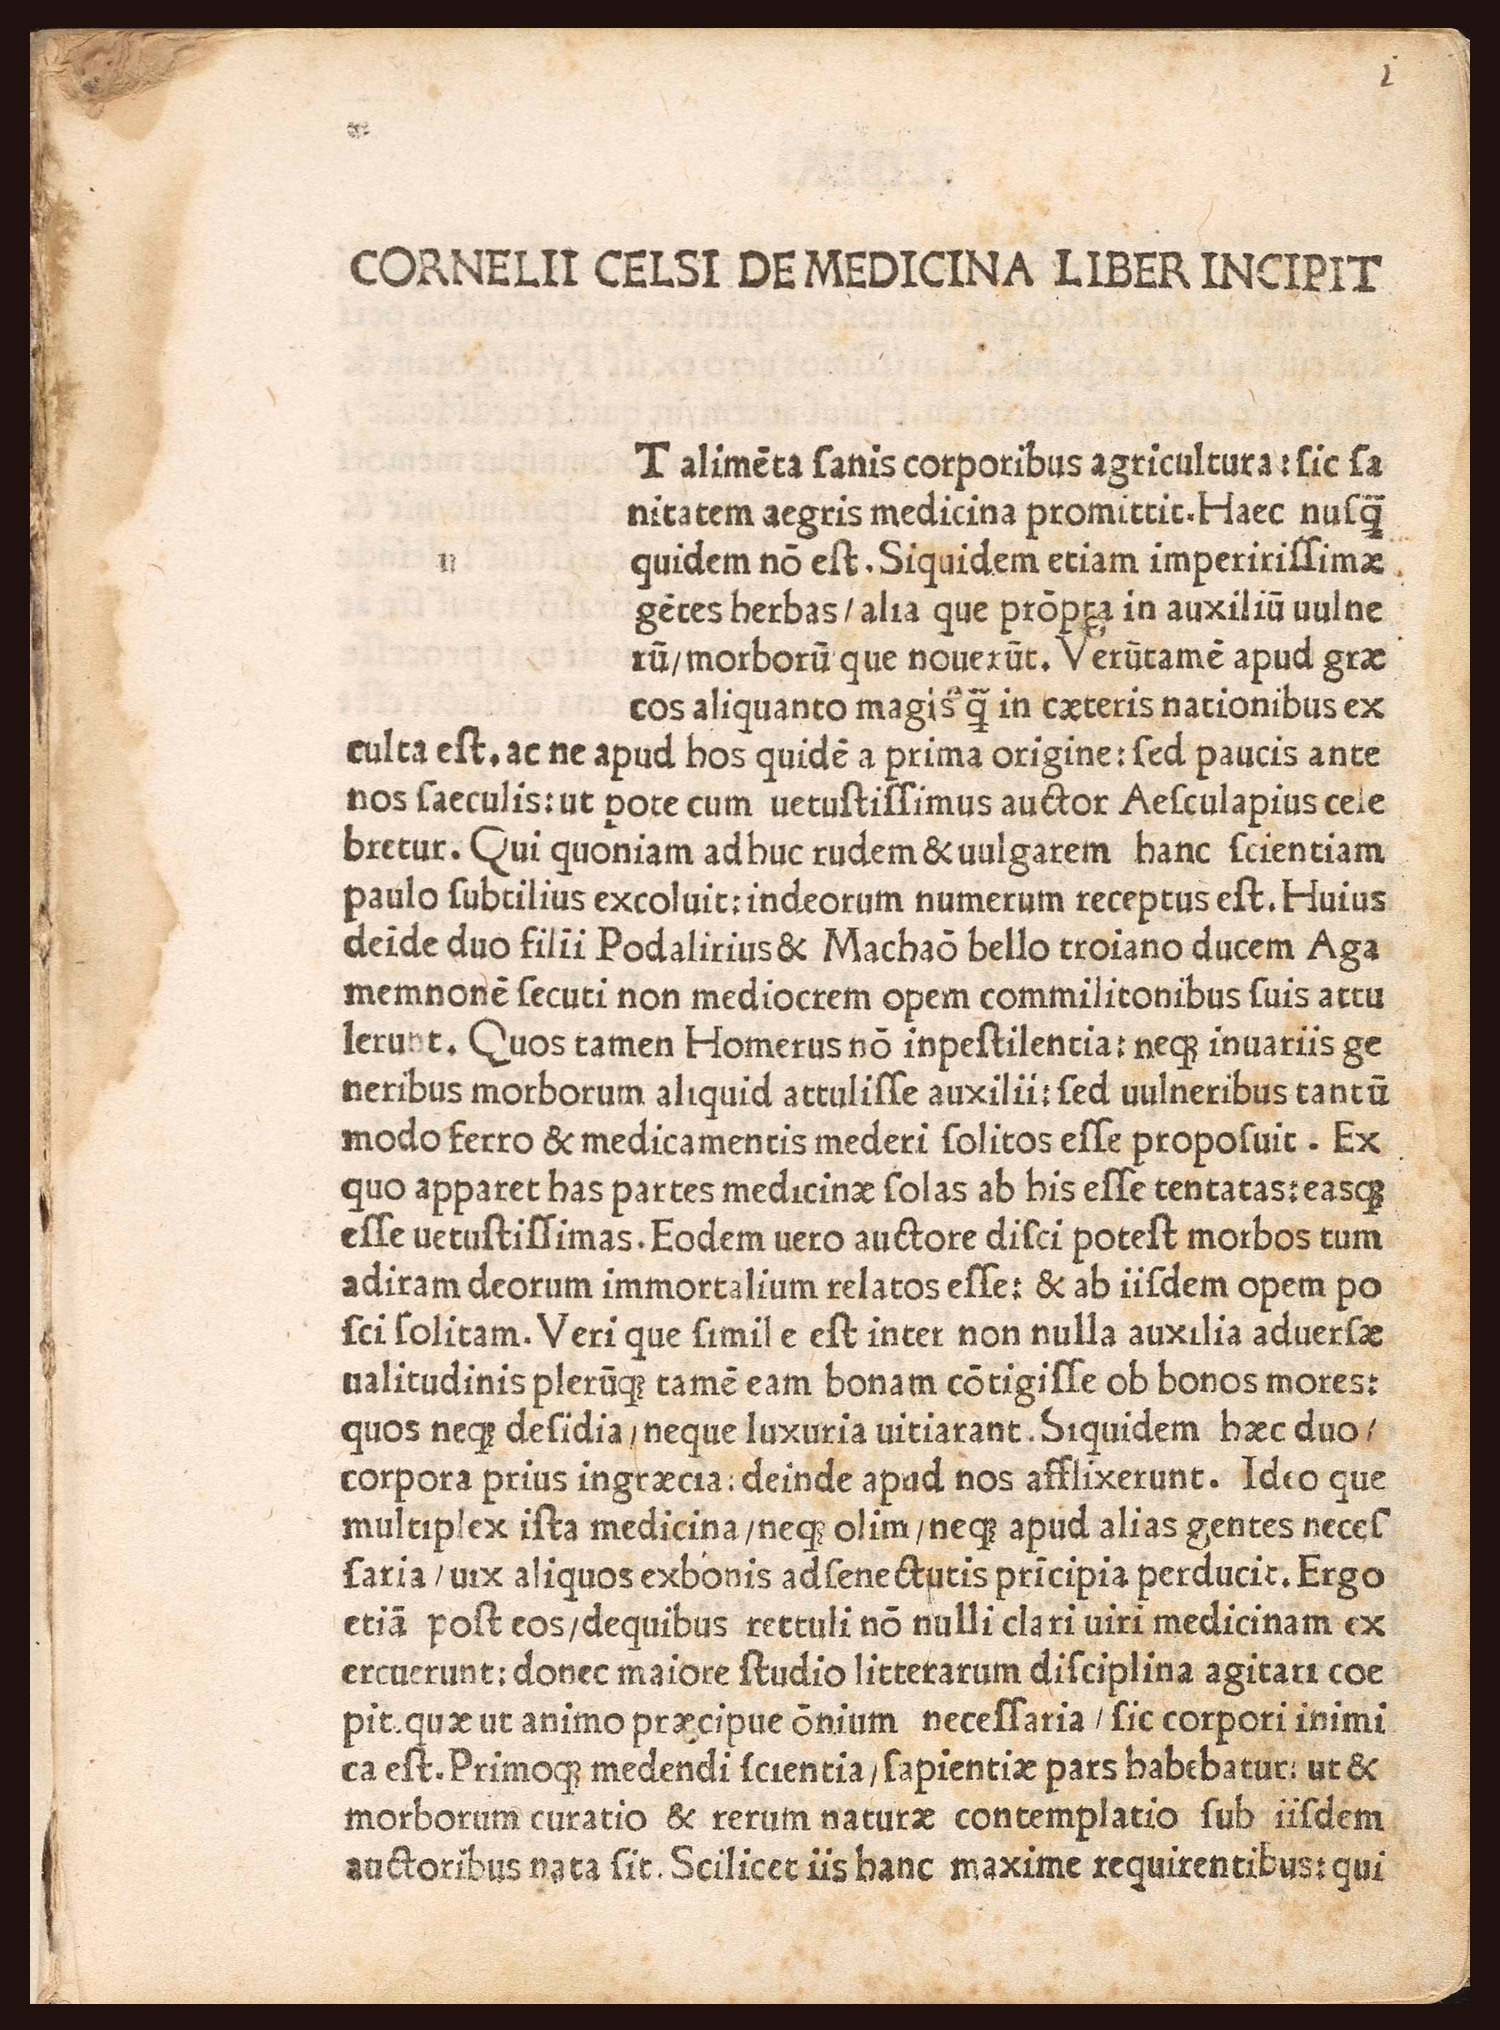 i
CORNELII CELSI DE MEDICINA LIBER INCIPIT
T alimēta ſanis corporibus agricultura: ſic ſa
nitatem aegris medicina promittit. Haec nuſq̄̃
u
quidem nō eſt. Siquidem etiam imperitiſſimæ
gētes herbas/ alia que prōpta in auxiliū uulne
rū/morborū que nouerūt. Verūtamē apud græ
cos aliquanto magis q̄̃ in cæteris nationibus ex
culta eſt. ac ne apud hos quidē a prima origine: ſed paucis ante
nos ſaeculis: ut pote cum uetuſtiſſimus auctor Aeſculapius cele
bretur. Qui quoniam adhuc rudem & uulgarem hanc ſcientiam
paulo ſubtilius excoluit: indeorum numerum receptus eſt. Huius
deīde duo filii Podalirius & Machaō bello troiano ducem Aga
memnonē ſecuti non mediocrem opem commilitonibus ſuis attu
lerunt. Quos tamen Homerus nō inpeſtilentia: neqꝫ inuariis ge
neribus morborum aliquid attuliſſe auxilii: ſed uulneribus tantū
modo ferro & medicamentis mederi ſolitos eſſe propoſuit. Ex
quo apparet has partes medicinæ ſolas ab his eſſe tentatas: easqꝫ
eſſe uetuſtiſſimas. Eodem uero auctore diſci poteſt morbos tum
adiram deorum immortalium relatos eſſe: & ab iiſdem opem po
ſci ſolitam. Veri que ſimile eſt inter non nulla auxilia aduerſæ
ualitudinis plerūqꝫ tamē eam bonam cōtigiſſe ob bonos mores:
quos neqꝫ deſidia/ neque luxuria uitiarant. Siquidem hæc duo/
corpora prius ingræcia: deinde apud nos afflixerunt. Ideo que
multiplex iſta medicina/neqꝫ olim/neqꝫ apud alias gentes neceſ
ſaria/ uix aliquos exbonis adſenectutis prīcipia perducit. Ergo
etiā poſt eos/dequibus rettuli nō nulli clari uiri medicinam ex
ercuerunt: donec maiore ſtudio litterarum diſciplina agitari coe
pit. quæ ut animo præcipue ōnium neceſſaria/ ſic corpori inimi
ca eſt. Primoqꝫ medendi ſcientia/ſapientiæ pars habebatur: ut &
morborum curatio & rerum naturæ contemplatio ſub iiſdem
auctoribus nata ſit. Scilicet iis hanc maxime requirentibus: qui